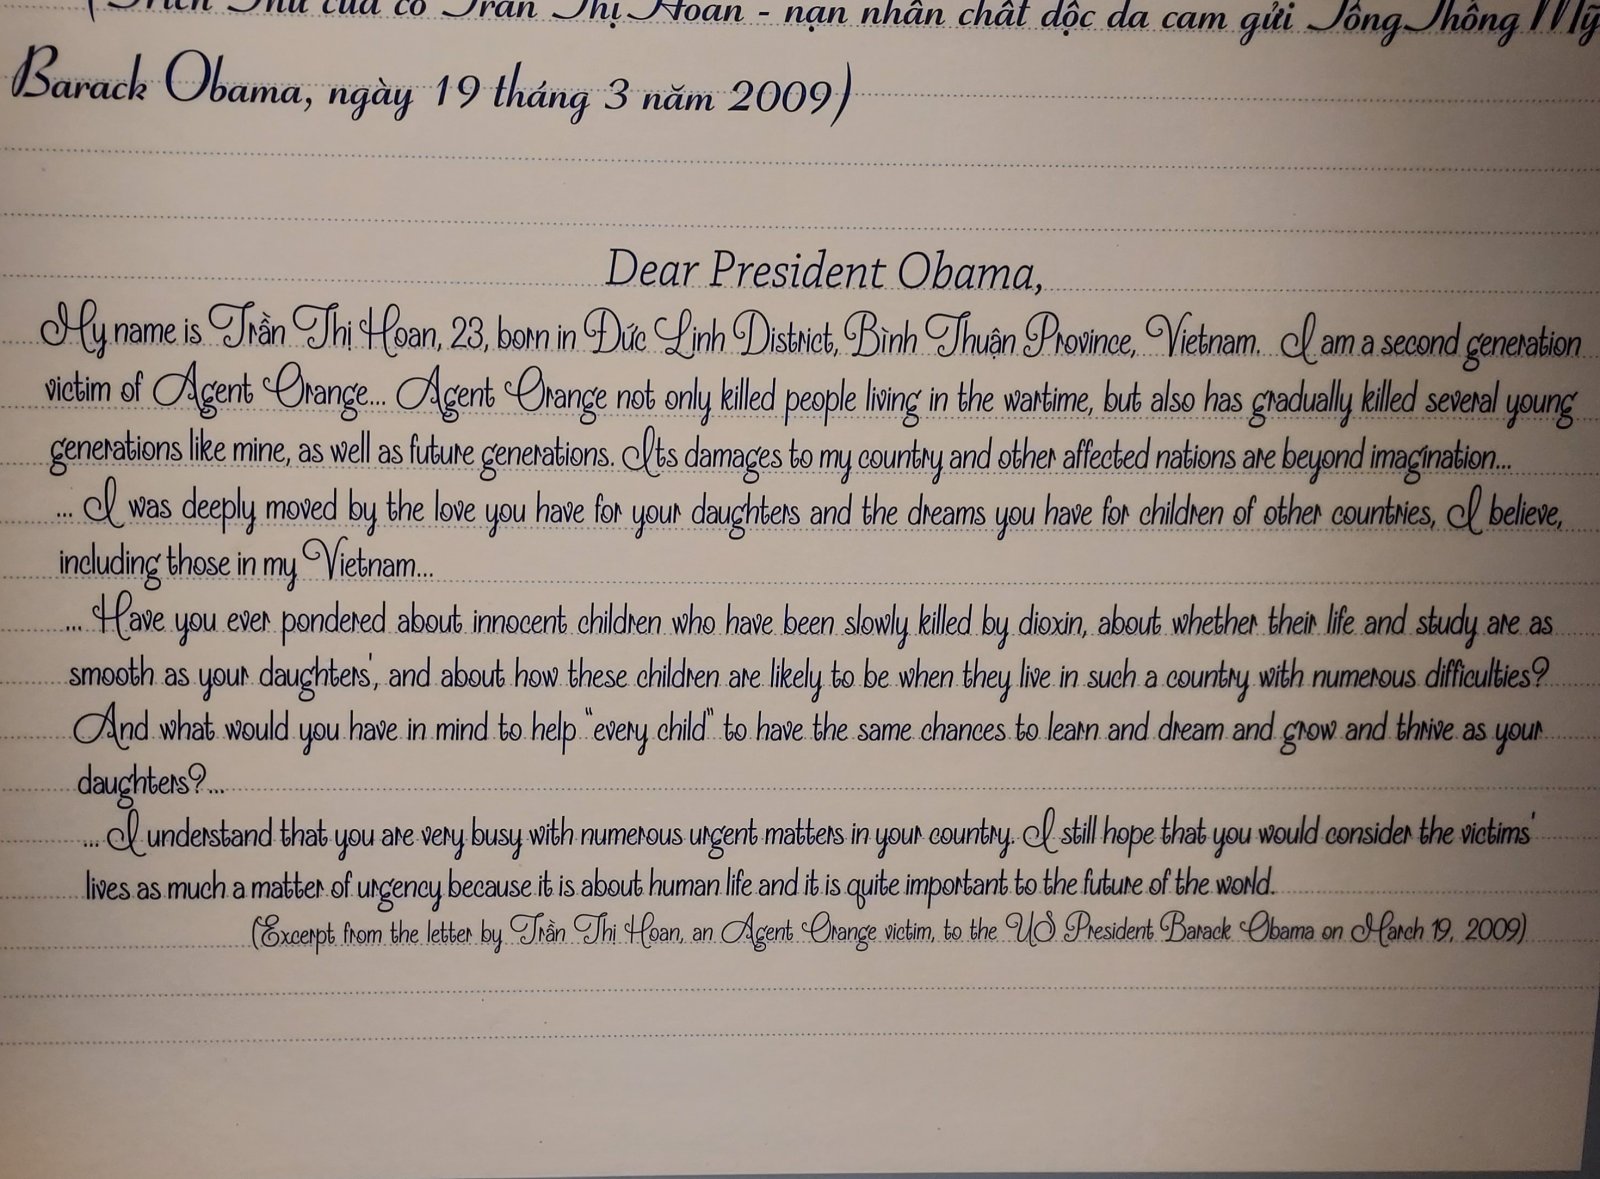 (Trích Thư của cô Trần Thị Hoan - nạn nhân chất độc da cam gửi Tổng Thống Mỹ
Barack Obama, ngày 19 tháng 3 năm 2009)
Dear President Obama,
My name is Trần Thị Hoan, 23, born in Đức Linh District, Bình Thuận Province, Vietnam. I am a second generation
victim of Agent Orange... Agent Orange not only killed people living in the wartime, but also has gradually killed several young
generations like mine, as well as future generations. Its damages to my country and other affected nations are beyond imagination...
... I was deeply moved by the love you have for your daughters and the dreams you have for children of other countries, I believe,
including those in my Vietnam...
... Have you ever pondered about innocent children who have been slowly killed by dioxin, about whether their life and study are as
smooth as your daughters', and about how these children are likely to be when they live in such a country with numerous difficulties?
And what would you have in mind to help "every child" to have the same chances to learn and dream and grow and thrive as your
daughters?...
... I understand that you are very busy with numerous urgent matters in your country. I still hope that you would consider the victims'
lives as much a matter of urgency because it is about human life and it is quite important to the future of the world.
(Excerpt from the letter by Trần Thị Hoan, an Agent Orange victim, to the US President Barack Obama on March 19, 2009)